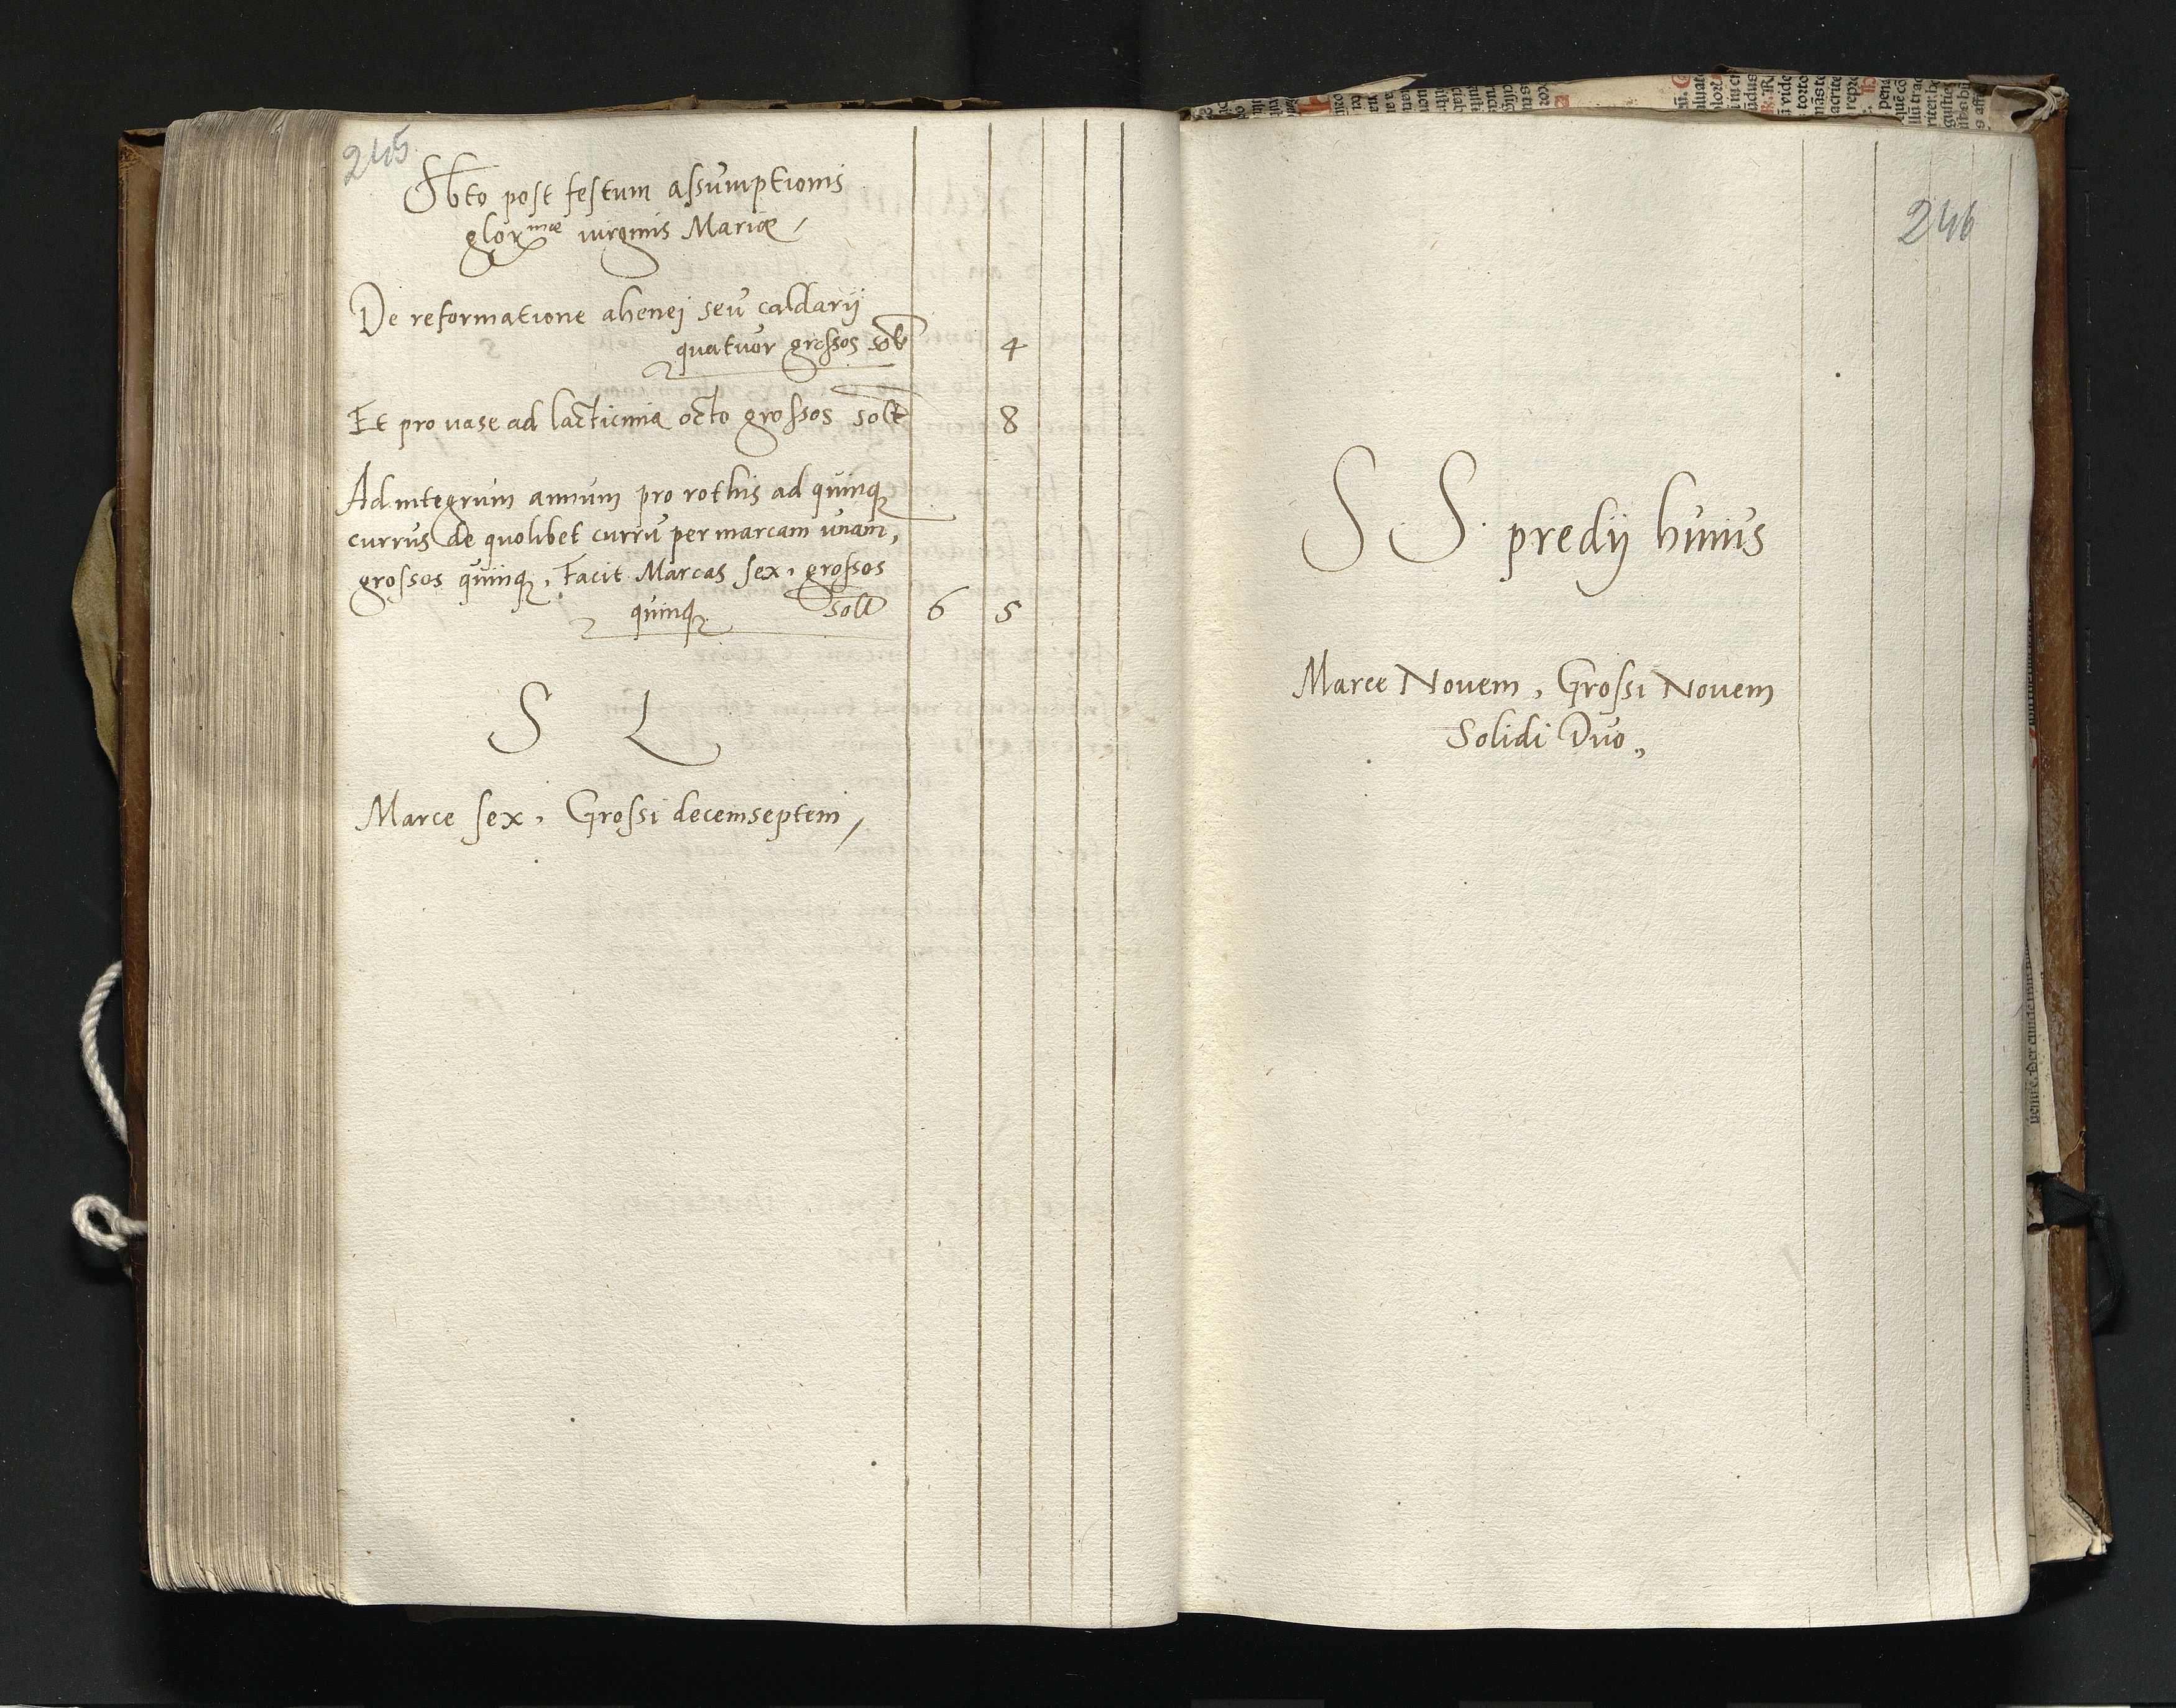 245
Sbto post festum assumptionis
glor mae virginis Mariae
De reformatione ahenej seu caldarij
quatuor grossos solt 4
Et pro vase ad lacticinia octo grossos solt 8
Ad integrum annum pro rothis ad quinq
currus de quolibet curru per marcam unam,
grossos quinq, Facit Marcas sex, grossos
quinq solt 6 5
S L
Marce sex, Grossi decemseptem
246
S S predij huius
Marce Novem, Grossi Novem
Solidi Duo,